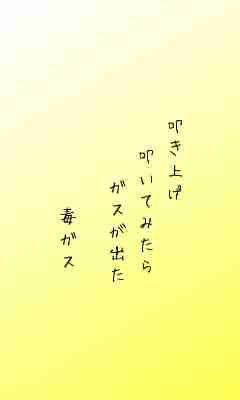 叩き上げ
叩いてみたら
ガスが出た
毒ガス